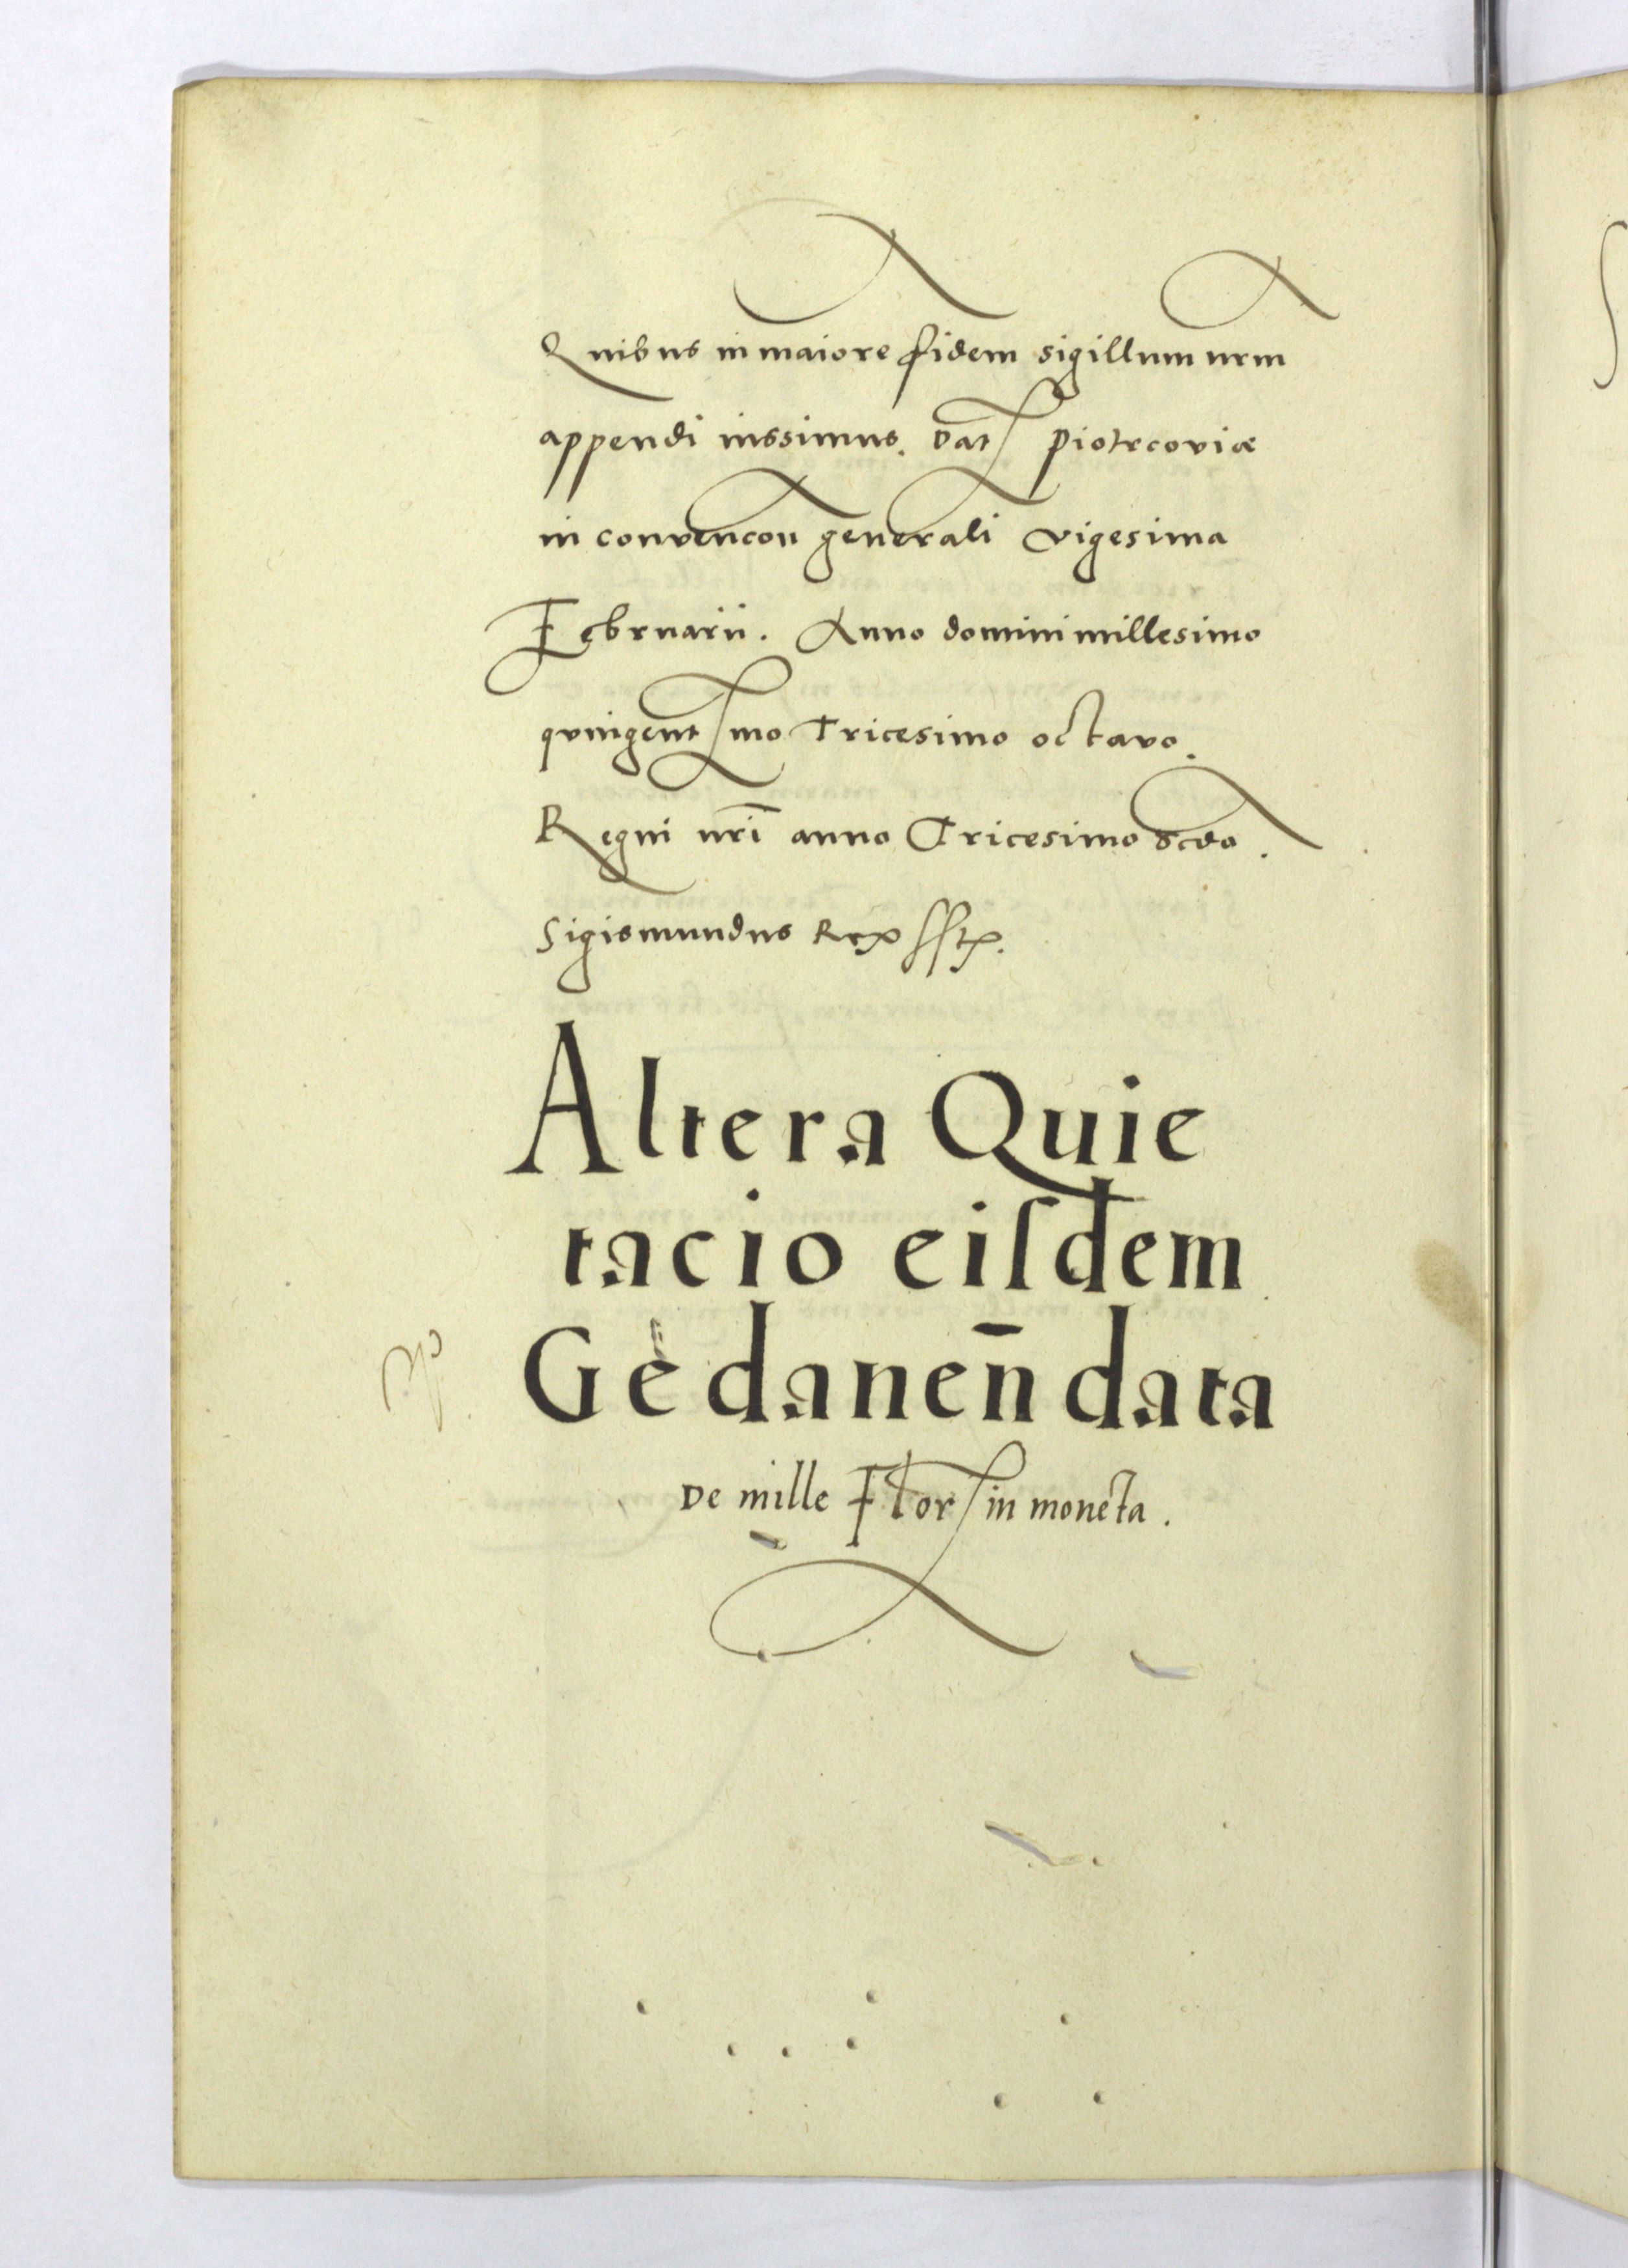 Quibus in maiorē fidem sigillum nrm
appendi iussimus. Dat Piotrcoviæ
in convencōn generali vigesima
Februarii. Anno domini millesimo
qvingentmo Tricesimo octavo.
Regni nrī anno Tricesimo scdo.
Sigismundus Rex sstx.
Altera Quie
tacio eiſdem
Gedaneñ data
De mille Flor in moneta.